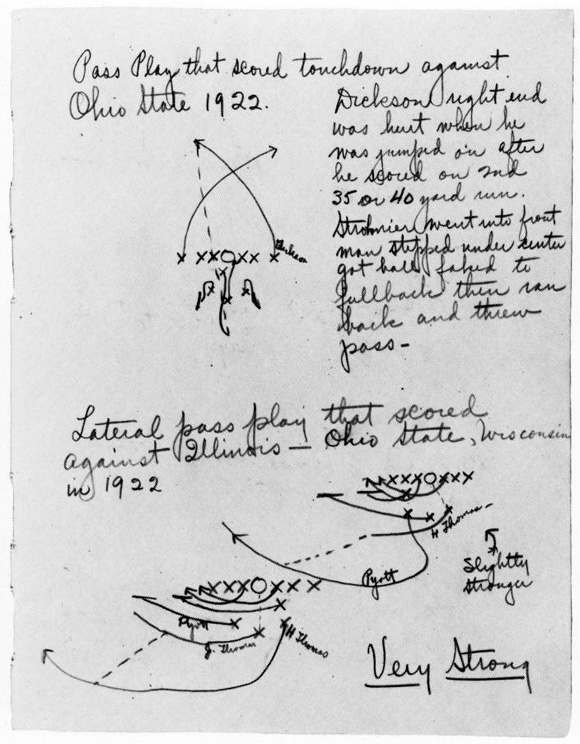 Pass Play that scored touchdown against
Ohio State 1922.
Dickson right end
was hurt when he
was jumped on after
he scored on 2nd
35 or 40 yard run.
Strohmier went into front
man stepped under center
got ball faked to
fullback then ran
back and threw
pass -
Dickson
Lateral pass play that scored
against Illinois - Ohio State, Wisconsin
in 1922
H Thomas
Pyott
Slightly
stronger
Pyott
J. Thomas
H Thomas
Very Strong